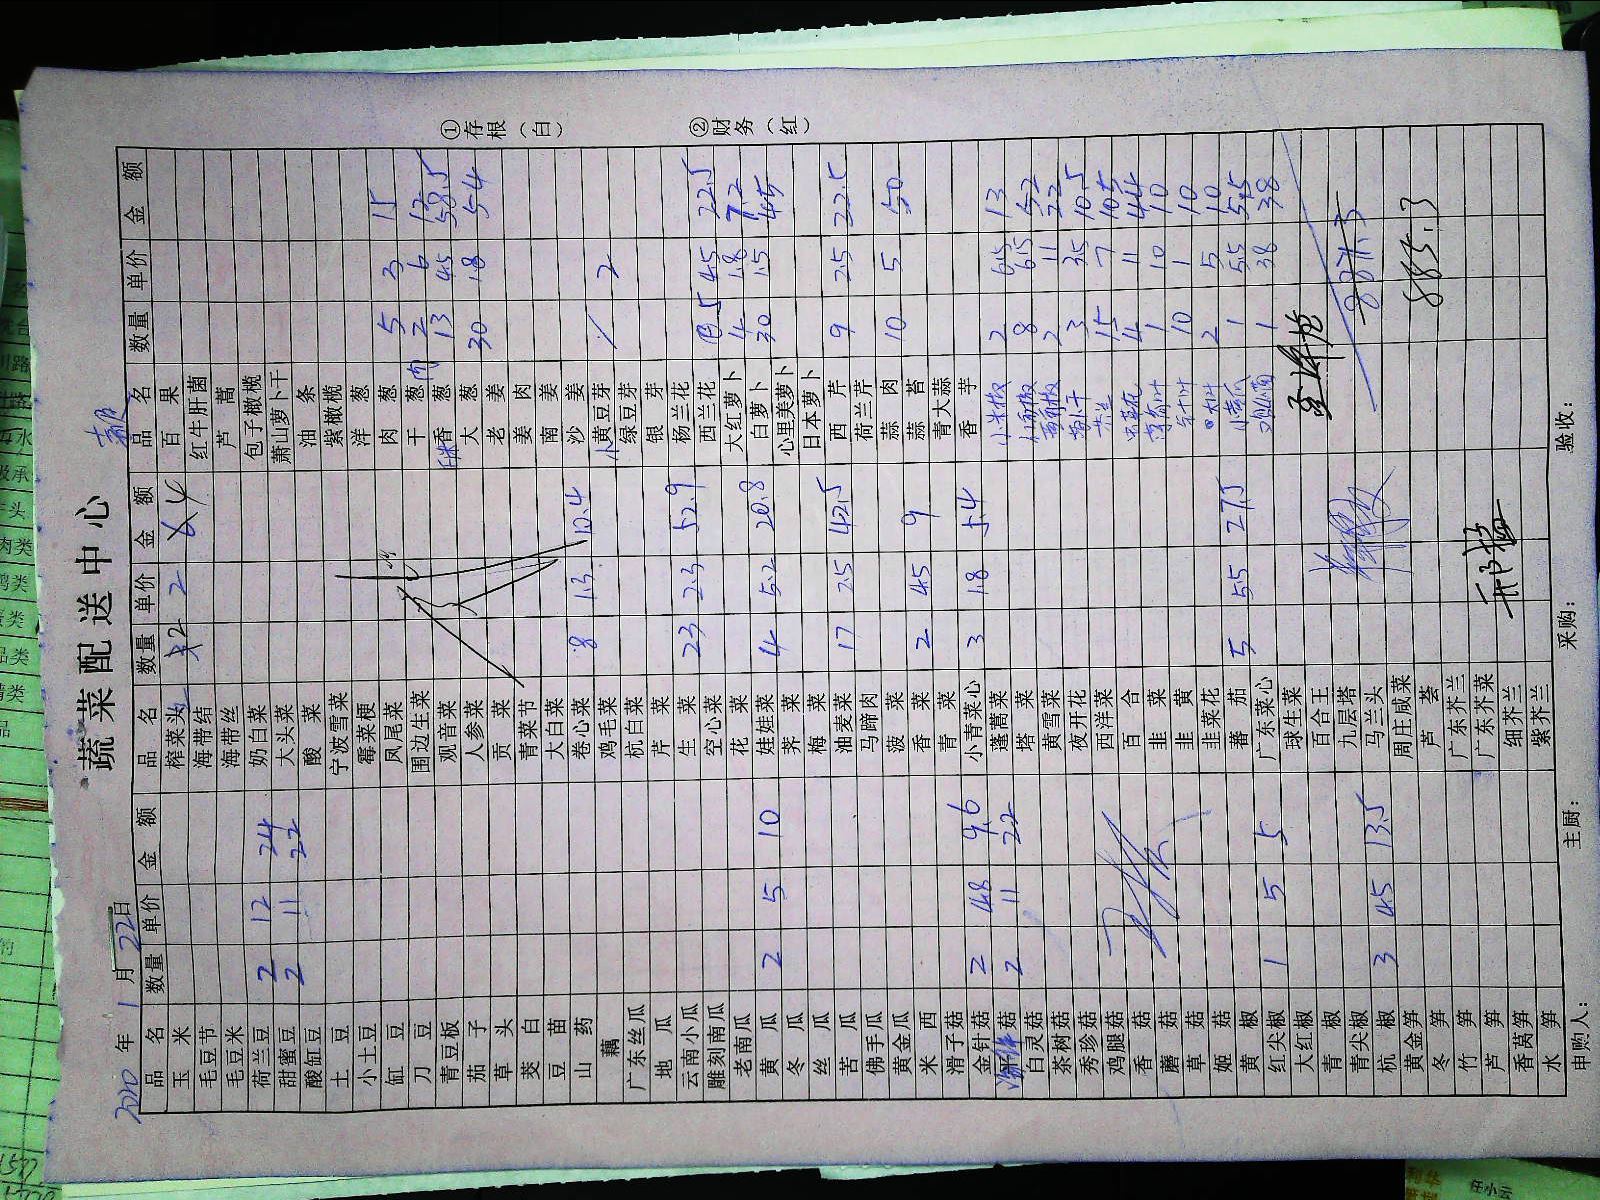 蔬菜配送中心
2020年1月22日
品名 数量 单价 金额 品名 数量 单价 金额 品名 数量 单价 金额
玉米 榨菜头 2 2 百果
毛豆节 海带结 红牛肝菌
毛豆米 海带丝 芦蒿
荷兰豆 2 12 24 奶白菜 包子橄榄
甜蜜豆 2 11 22 大头菜 萧山萝卜干
酸缸豆 酸菜 油条
土豆 宁波雪菜 紫橄榄
小土豆 霉菜梗 洋葱 5 3 15
缸豆 凤尾菜 肉葱 2 6 12
刀豆 围边生菜 干葱 13 4.5 58.5
青豆板 观音菜 香葱 30 1.8 54
茄子 人参菜 大葱
草头 贡菜 老姜
茭白 青菜节 姜肉
豆苗 大白菜 南姜
山药 卷心菜 8 1.3 10.4 沙姜
藕 鸡毛菜 小黄豆芽 2
广东丝瓜 杭白菜 绿豆芽
地瓜 芹菜 银芽
云南小瓜 生菜 23 2.3 52.9 杨兰花
雕刻南瓜 空心菜 西兰花 5 4.5 22.5
老南瓜 花菜 大红萝卜 4 1.8 7.2
黄瓜 2 5 10 娃娃菜 4 5.2 20.8 白萝卜 30 1.5 45
冬瓜 荠菜 心里美萝卜
丝瓜 梅菜 日本萝卜
苦瓜 油麦菜 17 2.5 42.5 西芹 9 2.5 22.5
佛手瓜 马蹄肉 荷兰芹
黄金瓜 菠菜 蒜肉 10 5 50
米西 香菜 2 4.5 9 蒜苔
滑子菇 青菜 青大蒜
金针菇 2 4.8 9.6 小青菜心 3 1.8 5.4 香芋
菇 2 11 22 蓬蒿菜 小米椒 2 6.5 13
白灵菇 塔菜 8 6.5 52
茶树菇 黄雪菜 2 11 22
秀珍菇 夜开花 3 3.5 10.5
鸡腿菇 西洋菜 15 7 105
香菇 百合 4 11 44
蘑菇 韭菜 薄荷叶 1 10 10
草菇 韭黄 10 1 10
姬菇 韭菜花 2 5 10
黄椒 蕃茄 5 5.5 27.5 小黄瓜 1 5.5 5.5
红尖椒 1 5 5 广东菜心 1 38 38
大红椒 球生菜
青椒 百合王
青尖椒 九层塔
杭椒 3 4.5 13.5 马兰头
黄金笋 周庄咸菜 885.3
冬笋 芦荟
竹笋 广东芥兰
芦笋 广东芥菜
香莴笋 细芥兰
水笋 紫芥兰
申购人： 主厨： 采购： 验收：
①存根（白）
②财务（红）